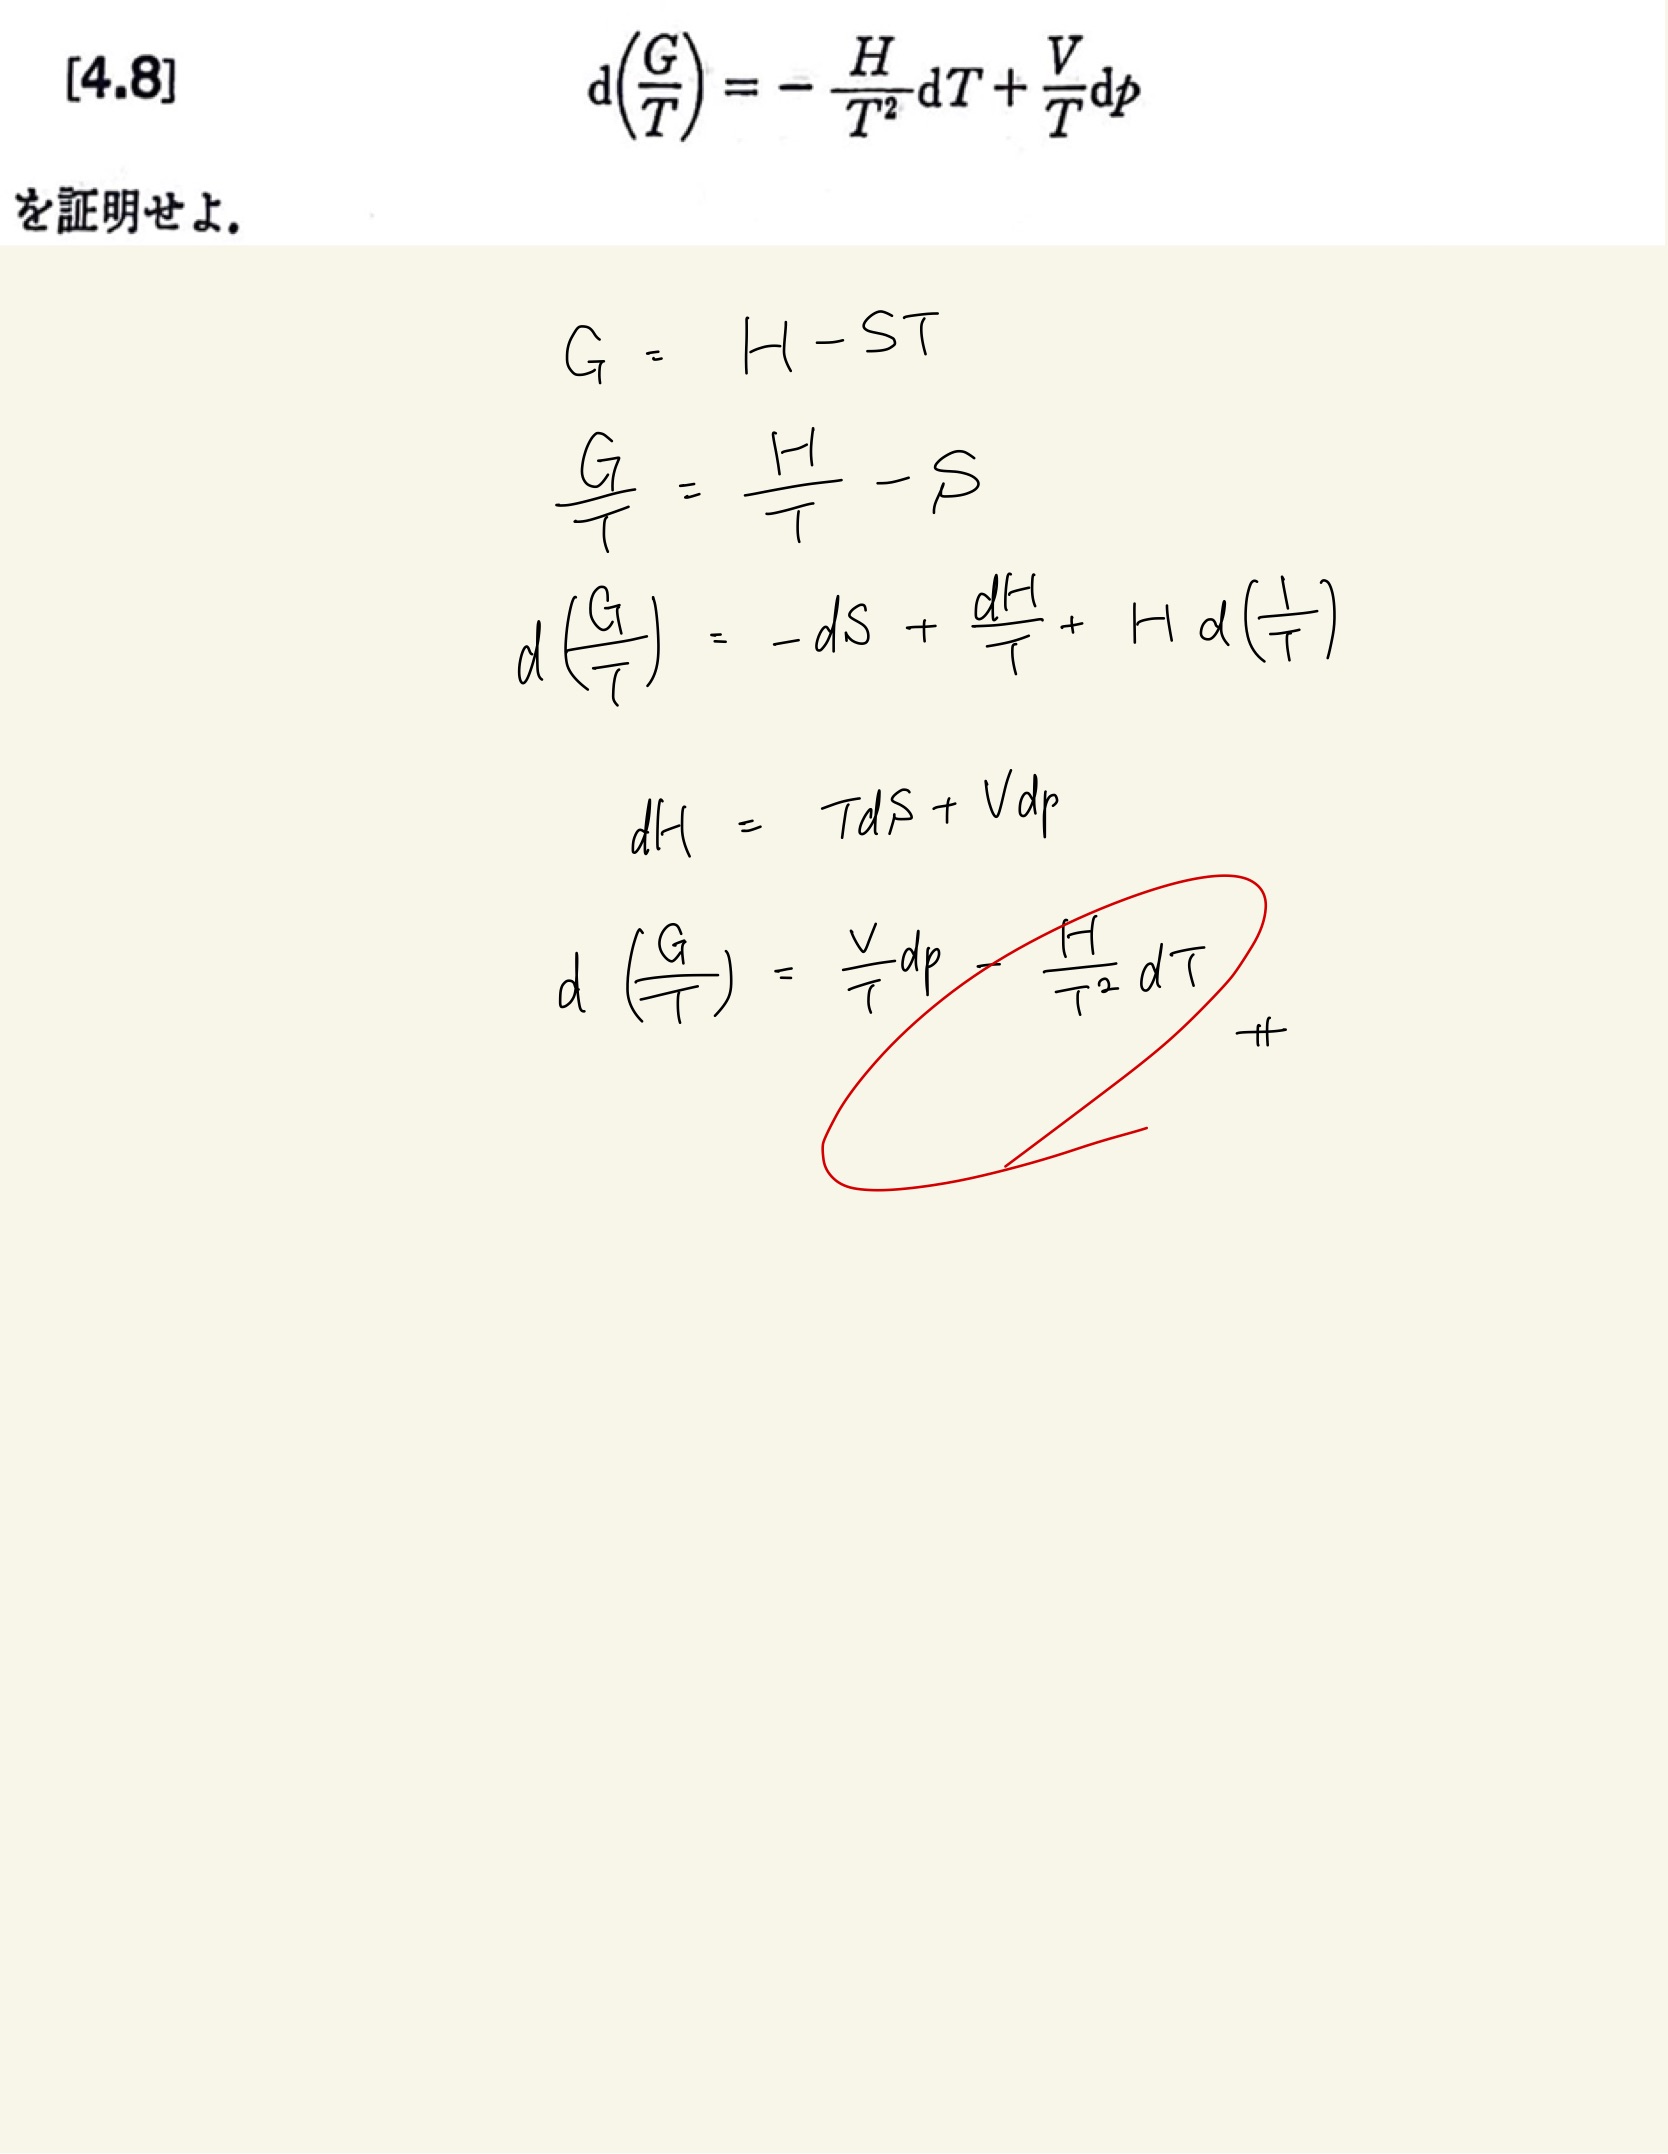 [4.8] d(G/T) = - H/T² dT + V/T dp
を証明せよ.
G = H - ST
G/T = H/T - S
d(G/T) = - dS + dH/T + H d(1/T)
dH = TdS + Vdp
d(G/T) = V/T dp - H/T² dT
#